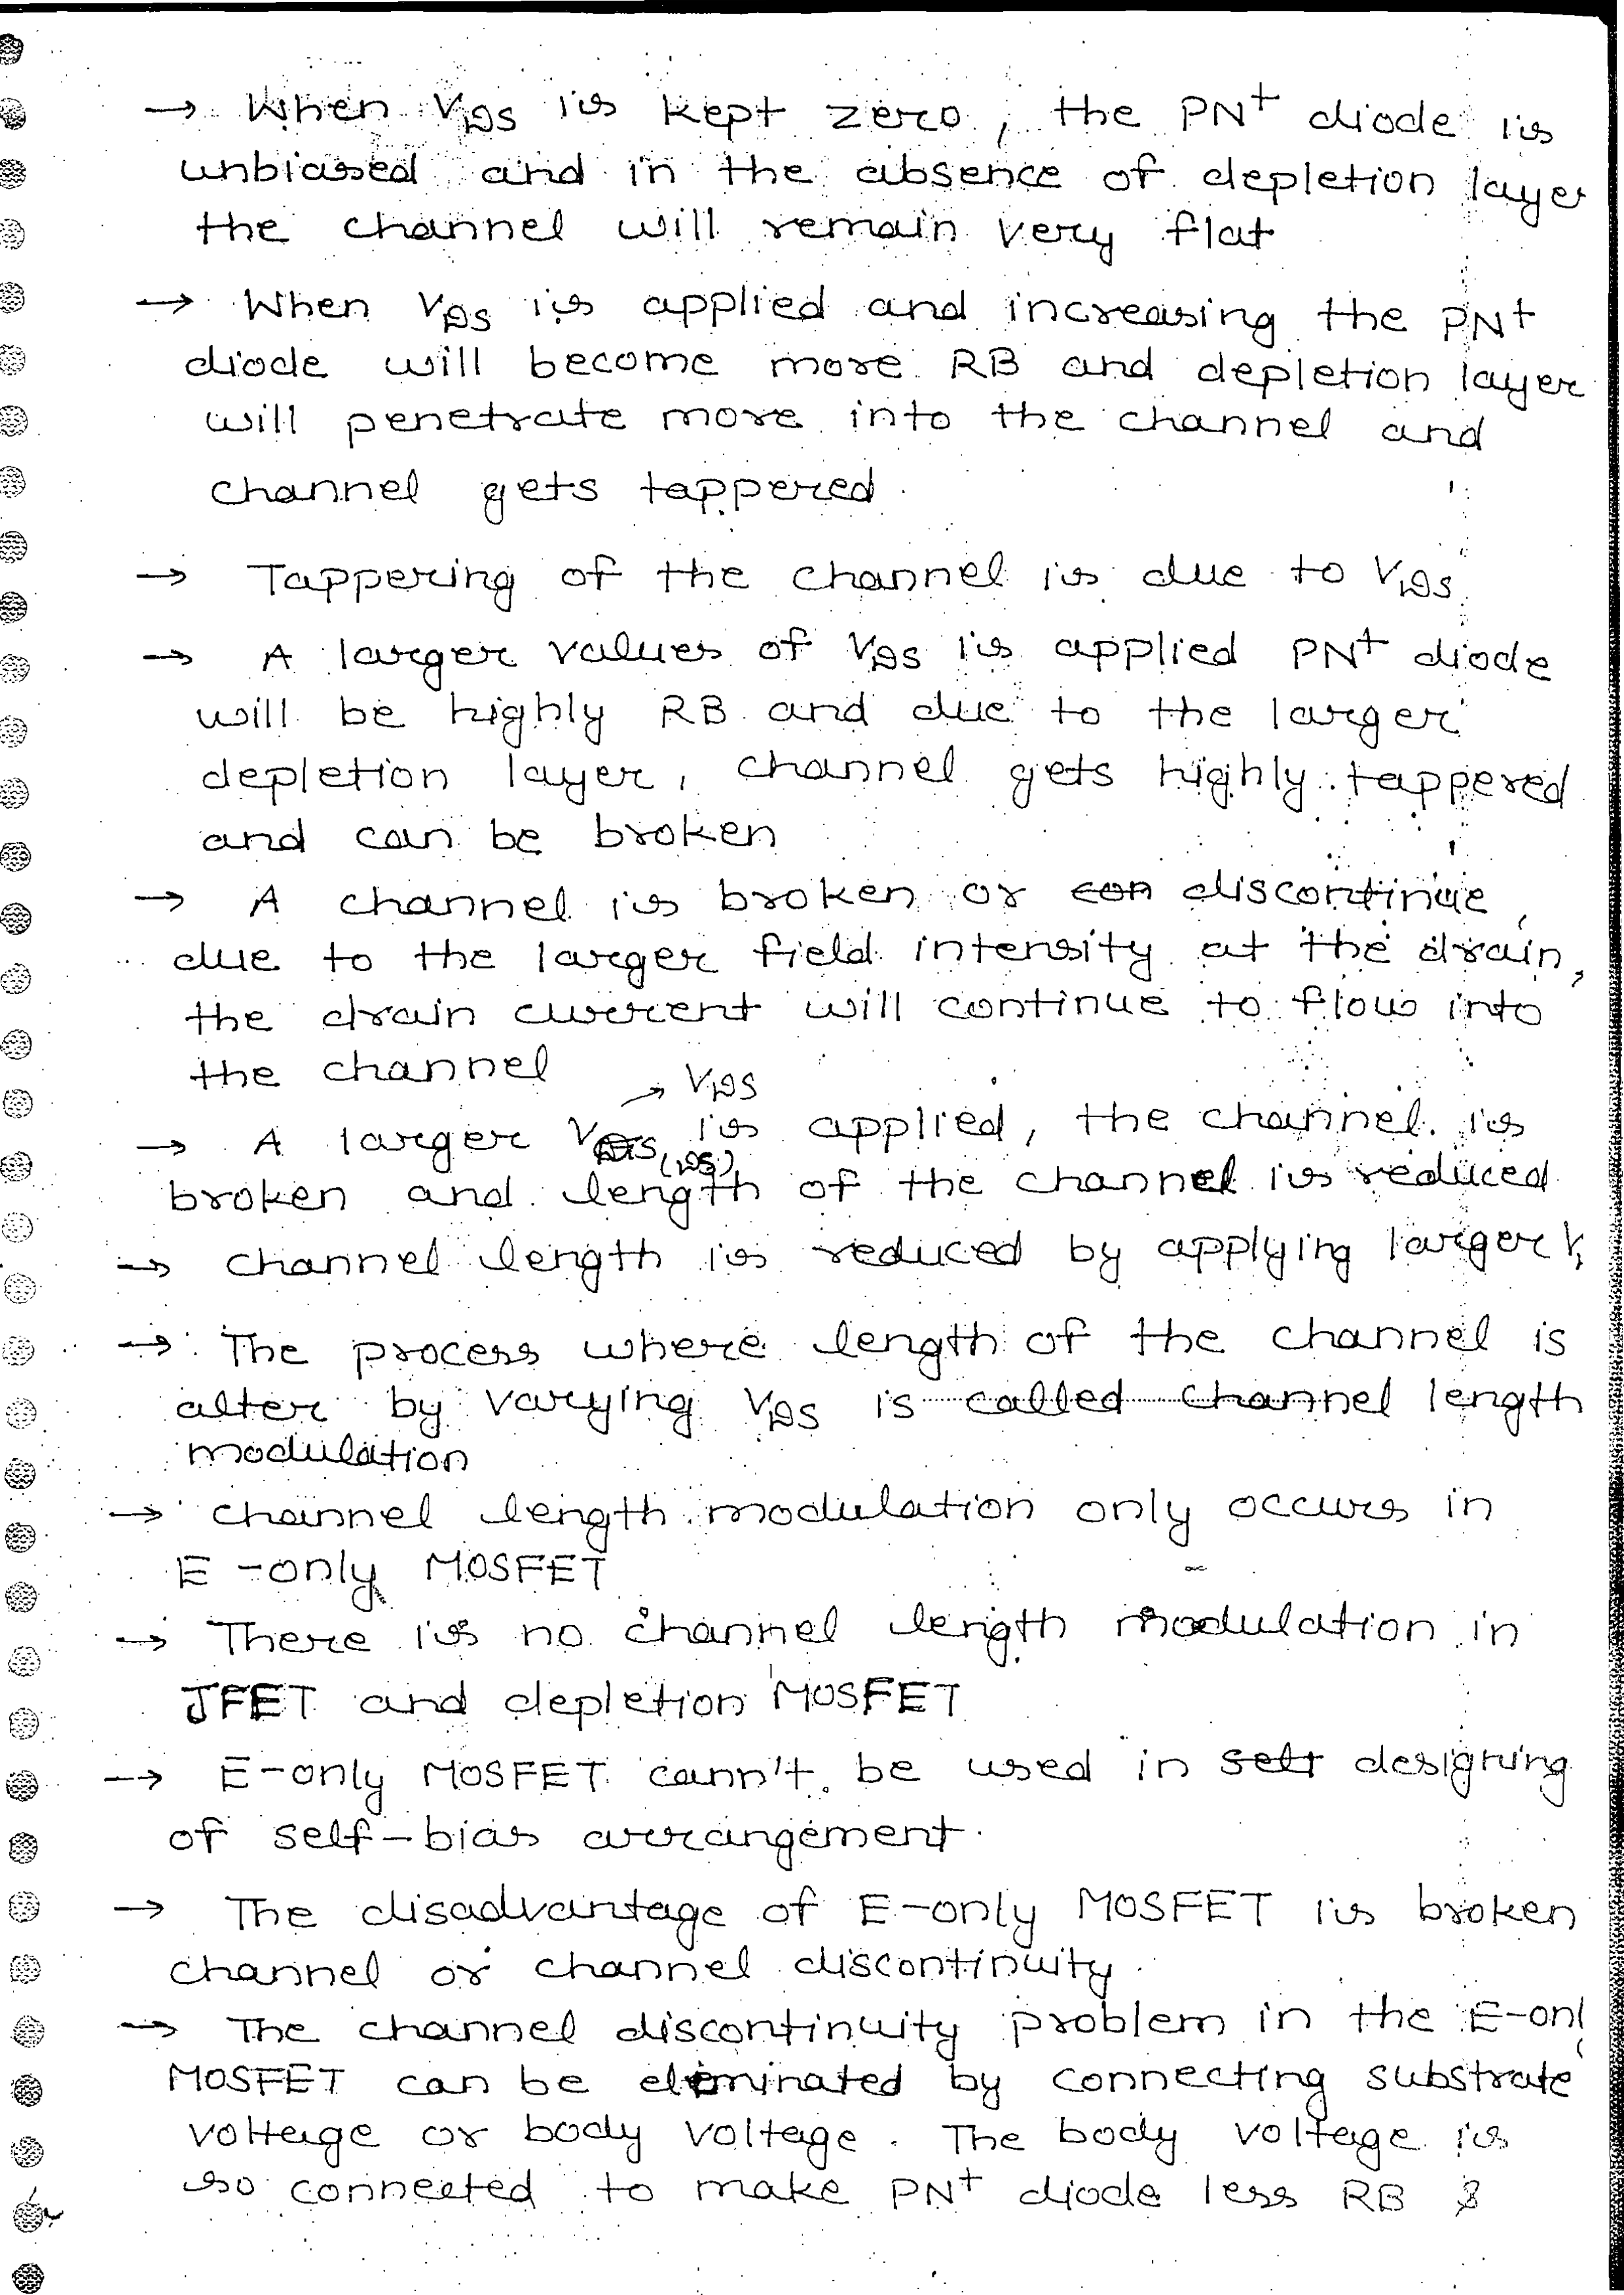 → When VDS is kept zero, the PN+ diode is
unbiased and in the absence of depletion layer
the channel will remain very flat
→ When VDS is applied and increasing the PN+
diode will become more RB and depletion layer
will penetrate more into the channel and
channel gets tappered.
→ Tappering of the channel is due to VDS
→ A larger values of VDS is applied PN+ diode
will be highly RB and due to the larger
depletion layer, channel gets highly tappered
and can be broken
→ A channel is broken or con discontinue,
due to the larger field intensity at the drain,
the drain current will continue to flow into
the channel
→ VDS
→ A larger V (DS) is applied, the channel is
broken and length of the channel is reduced
→ channel length is reduced by applying larger V
→ The process where length of the channel is
alter by varying VDS is called channel length
modulation
→ channel length modulation only occurs in
E-only MOSFET
→ There is no channel length modulation in
JFET and depletion MOSFET
→ E-only MOSFET cann't be used in self designing
of self-bias arrangement.
→ The disadvantage of E-only MOSFET is broken
channel or channel discontinuity.
→ The channel discontinuity problem in the E-onl
MOSFET can be eleminated by connecting substrate
voltage or body voltage. The body voltage is
so connected to make PN+ diode less RB &